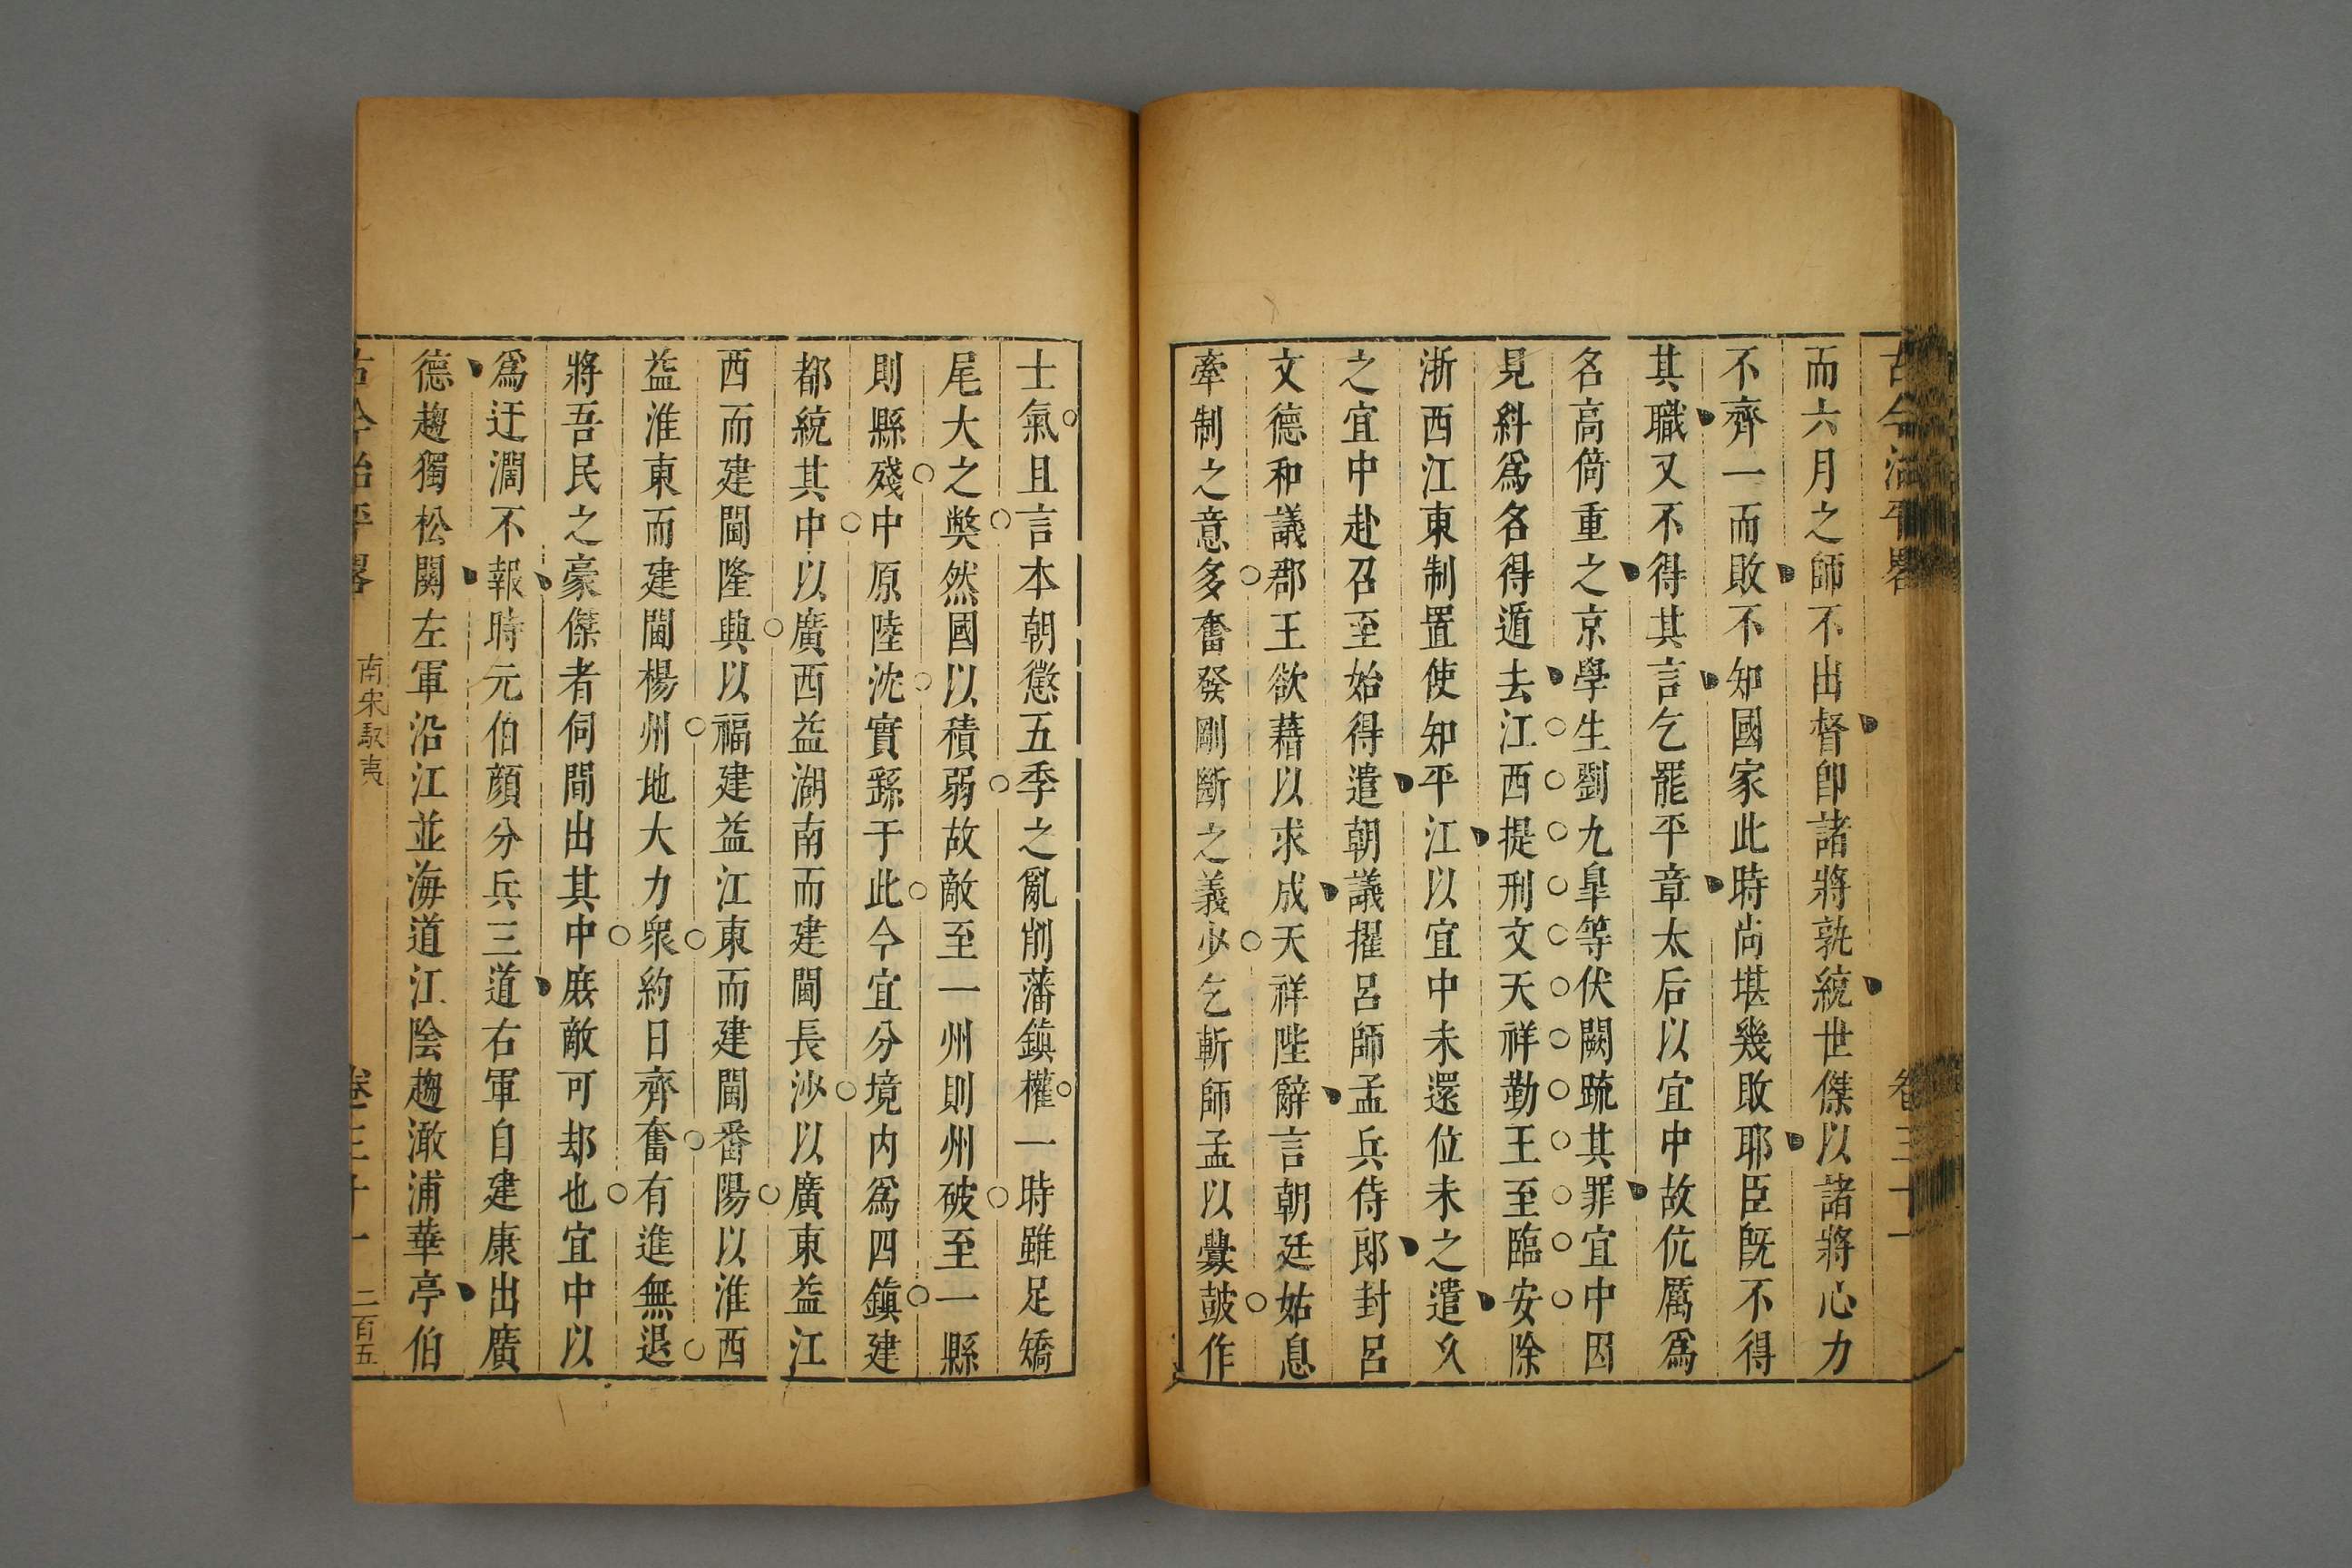 古今治平畧 卷三十一
而六月之師不出督卽諸將孰統世傑以諸將心力
不齊一而敗不知國家此時尚堪幾敗耶臣旣不得
其職又不得其言乞罷平章太后以宜中故伉厲爲
名高倚重之京學生劉九臯等伏闕䟽其罪宜中因
見糾爲名得遁去江西提刑文天祥勤王至臨安除
浙西江東制置使知平江以宜中未還位未之遣久
之宜中赴召至始得遣朝議擢呂師孟兵侍郎封呂
文德和議郡王欲藉以求成天祥陛辭言朝廷姑息
牽制之意多奮發剛斷之義少乞斬師孟以釁皷作
士氣且言本朝懲五季之亂削藩鎮權一時雖足矯
尾大之獘然國以積弱故敵至一州則州破至一縣
則縣殘中原陸沈實繇于此今宜分境内爲四鎮建
都統其中以廣西益湖南而建閫長沙以廣東益江
西而建閫隆興以福建益江東而建閫番陽以淮西
益淮東而建閫楊州地大力衆約日齊奮有進無退
將吾民之豪傑者伺間出其中庶敵可却也宜中以
爲迂濶不報時元伯顔分兵三道右軍自建康出廣
德趨獨松關左軍沿江並海道江陰趨澉浦華亭伯
古今治平畧 南宋馭夷 卷三十一 二百五